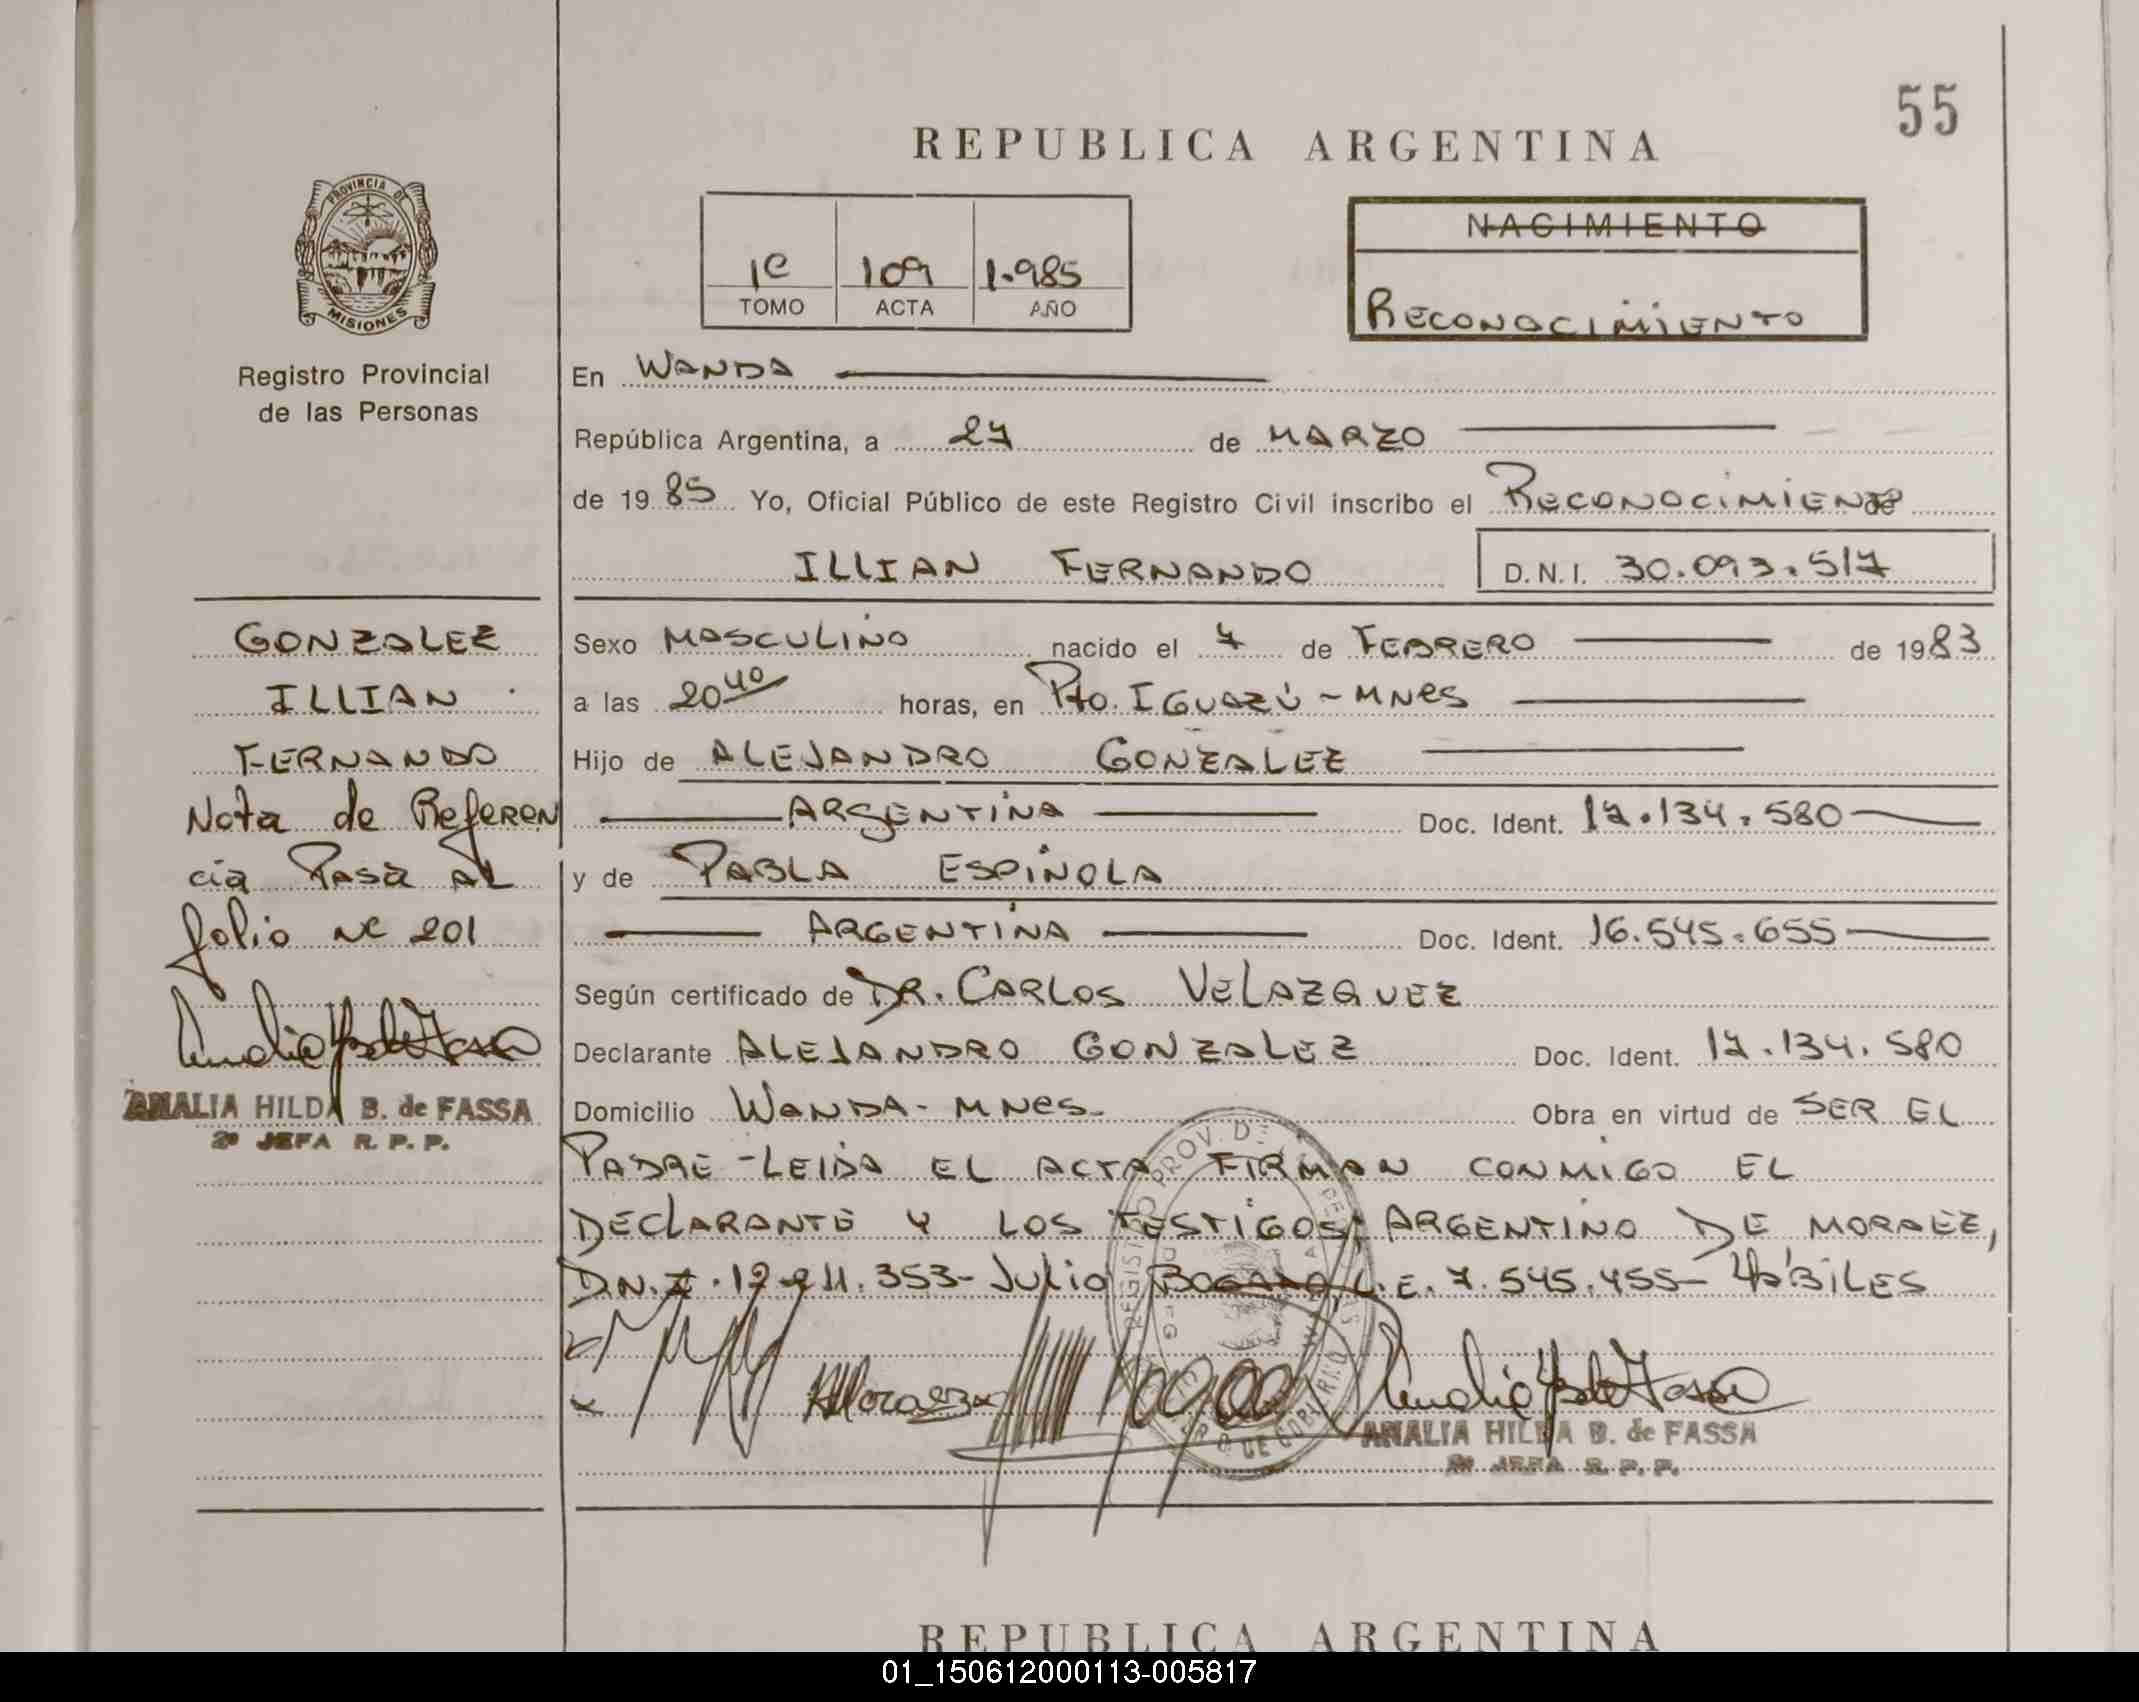 55
REPUBLICA ARGENTINA
PROVINCIA DE
MISIONES
1º 109 1.985
TOMO ACTA AÑO
NACIMIENTO
RECONOCIMIENTO
Registro Provincial
de las Personas
En WANDA
República Argentina, a 27 de MARZO
de 1985 Yo, Oficial Público de este Registro Civil inscribo el RECONOCIMIENTO de
ILLIAN FERNANDO D.N.I. 30.093.517
GONZALEZ
ILLIAN
FERNANDO
Nota de Referen
cia Pasa AL
folio Nº 201
AMALIA HILDA B. de FASSA
2º JEFA R. P. P.
Sexo MASCULINO nacido el 7 de FEBRERO de 1983
a las 20 40 horas, en Pto. IGUAZÚ - MNES
Hijo de ALEJANDRO GONZALEZ
ARGENTINA Doc. Ident. 17.134.580
y de PABLA ESPINOLA
ARGENTINA Doc. Ident. 16.545.655
Según certificado de DR. CARLOS VELAZQUEZ
Declarante ALEJANDRO GONZALEZ Doc. Ident. 17.134.580
Domicilio WANDA - MNES. Obra en virtud de SER EL
PADRE - LEIDA EL ACTA FIRMAN CONMIGO EL
DECLARANTE Y LOS TESTIGOS; ARGENTINO DE MORAEZ,
D.N.I. 353 - Julio L.E. 7.545.455 - HÁBILES
AMALIA HILDA B. de FASSA
2º JEFA R. P. P.
REPUBLICA ARGENTINA
01_150612000113-005817